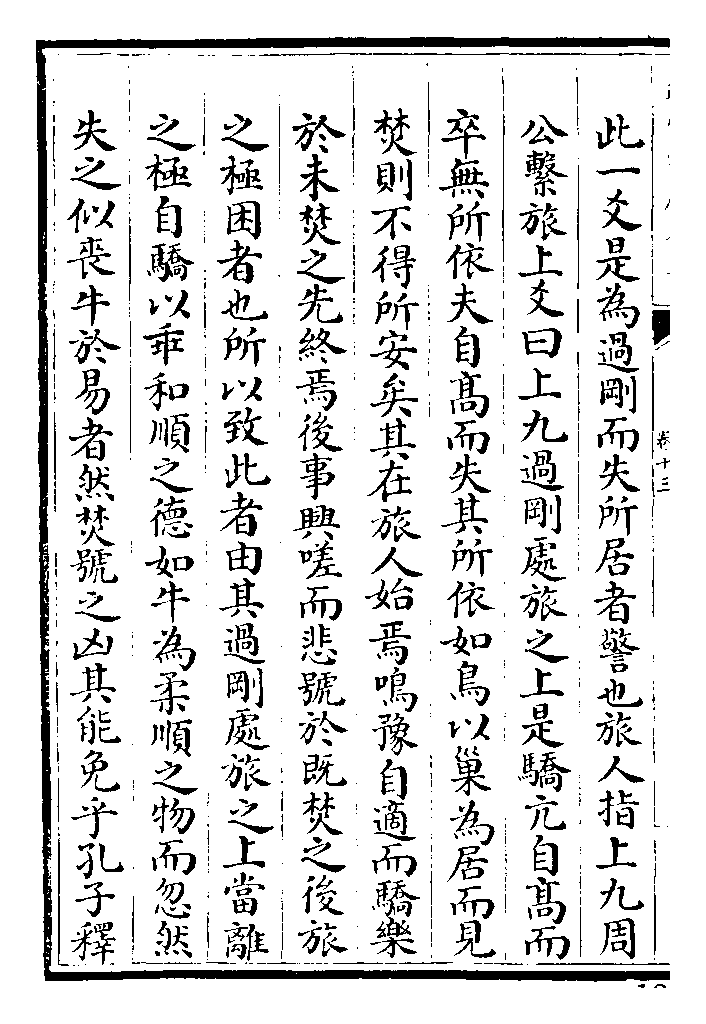 此一爻是為過剛而失所居者警也旅人指上九周
公繫旅上爻曰上九過剛處旅之上是驕亢自髙而
卒無所依夫自髙而失其所依如鳥以巢為居而見
焚則不得所安矣其在旅人始焉鳴豫自適而驕樂
於未焚之先終焉後事興嗟而悲號於既焚之後旅
之極困者也所以致此者由其過剛處旅之上當離
之極自驕以乖和順之德如牛為柔順之物而忽然
失之似喪牛於易者然焚號之凶其能免乎孔子釋
卷十三